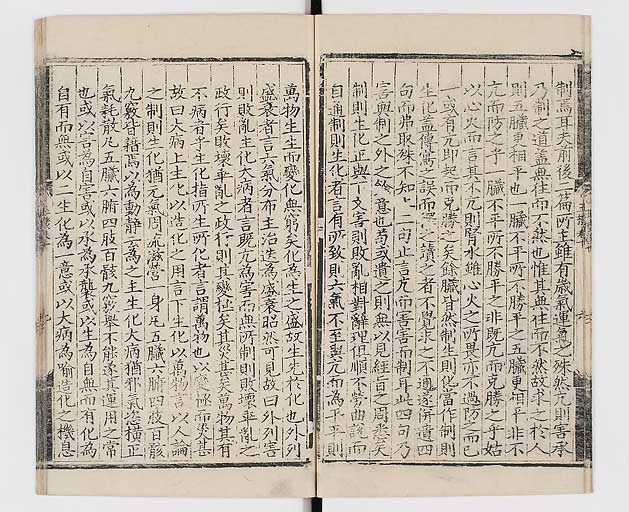 制焉耳夫前後二篇所主雖有歲氣運氣之殊然亢則害承
乃制之道蓋無往而不然也惟其無往而不然故求之於人
則五臟更相平也一臟不平所不勝平之五臟更相平非不
亢而防之乎一臟不平所不勝平之非既亢而克勝之乎姑
以心火而言其不亢則腎水雖心火之所畏亦不過防之而已
一或有亢即起而克勝之矣餘臟皆然制生則化當作制則
生化蓋傳寫之誤而釋之讀之者不覺求之不通遂併遺四
句而弗取殊不知上二句正言亢而害害而制耳此四句乃
害與制之外之餘意也苟或遺之則無以見經旨之周悉矣
制則生化正與下文害則敗亂相對辭理俱順不勞曲說而
自通制則生化者言有所致則六氣不至與亢而為平平則
萬物生生而變化無窮矣化為生之盛故生先於化也外列
盛衰者言六氣分布主治迭為盛衰昭然可見故曰外列害
則敗亂生化大病者言既亢為害而無所制則敗壞乖亂之
政行矣敗壞乖亂之政行則其變極矣其災甚矣萬物其有
不病者乎生化指所生所化者言謂萬物也以變極而災甚
故曰大病上生化以造化之用言下生化以萬物言以人論
之制則生化猶元氣周流滋營一身凡五臟六腑四肢百骸
九竅皆藉焉以為動靜云為之主生化大病猶邪氣恣橫正
氣耗散凡五臟六腑四肢百骸九竅舉不能遂其運用之常
也或以害為自害或以承為承襲或以生為自無而有化為
自有而無或以二生化為一意或以大病為喻造化之機息